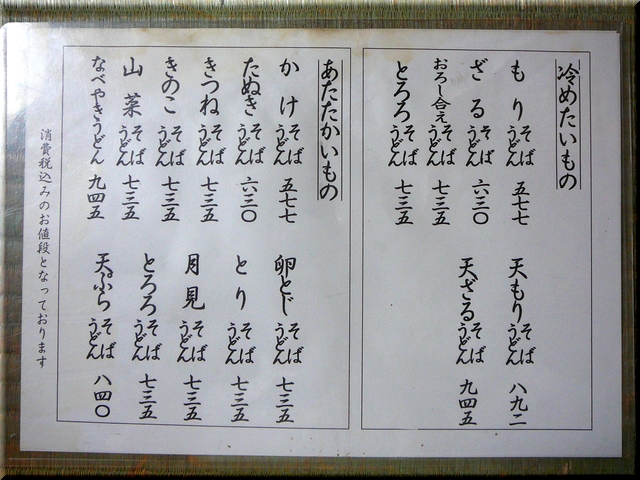 冷めたいもの
もり そば うどん 五七七
ざる そば うどん 六三〇
おろし合え そば うどん 七三五
とろろ そば うどん 七三五
天もり そば うどん 八九二
天ざる そば うどん 九四五
あたたかいもの
かけ そば うどん 五七七
たぬき そば うどん 六三〇
きつね そば うどん 七三五
きのこ そば うどん 七三五
山菜 そば うどん 七三五
なべやきうどん 九四五
卵とじ そば うどん 七三五
とり そば うどん 七三五
月見 そば うどん 七三五
とろろ そば うどん 七三五
天ぷら そば うどん 八四〇
消費税込みのお値段となっております